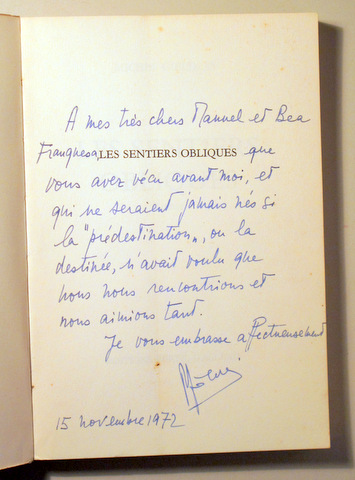 A mes très chers Manuel et Bea
Franquesa, LES SENTIERS OBLIQUES que
vous avez vécu avant moi, et
qui ne seraient jamais nés si
la "prédestination", ou la
destinée, n'avait voulu que
nous nous rencontrions et
nous aimions tant.
Je vous embrasse affectueusement
15 novembre 1972